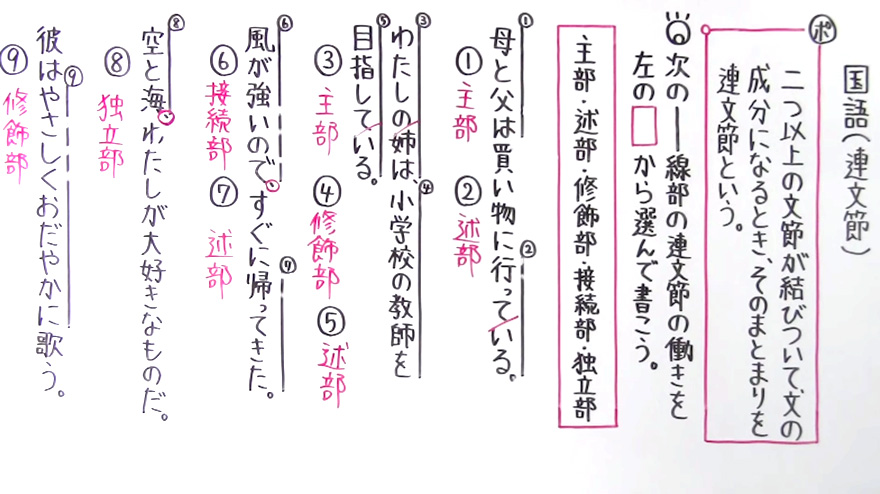 国語(連文節)
ポ
二つ以上の文節が結びついて、文の
成分になるとき、そのまとまりを
連文節という。
次の━線部の連文節の働きを
左の□から選んで書こう。
主部・述部・修飾部・接続部・独立部
① ②
母と父は買い物に行っている。
①主部 ②述部
③ ④
わたしの姉は、小学校の教師を
⑤
目指している。
③主部 ④修飾部 ⑤述部
⑥ ⑦
風が強いので、すぐに帰ってきた。
⑥接続部 ⑦述部
⑧
空と海、わたしが大好きなものだ。
⑧独立部
⑨
彼はやさしくおだやかに歌う。
⑨修飾部